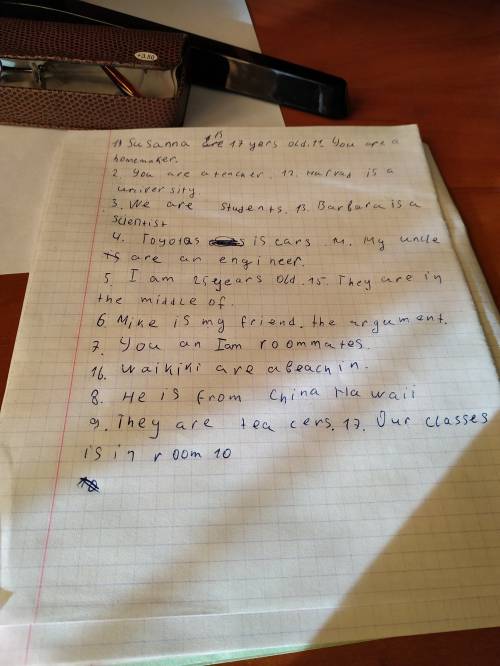 +3.50
1) Susanna is 17 yers old. 11. You are a
homemaker.
2. You are a teacher. 12. Harvad is a
university.
3. We are students. 13. Barbara is a
scientist
4. Toyotas is cars 14. My uncle
are an engineer.
5. I am 25 years old. 15. They are in
the middle of.
6. Mike is my friend. the argument.
7. You an I am roommates.
16. Waikiki are a beach in.
8. He is from China Hawaii
9. They are tea cers. 17. Our classes
is in room 10